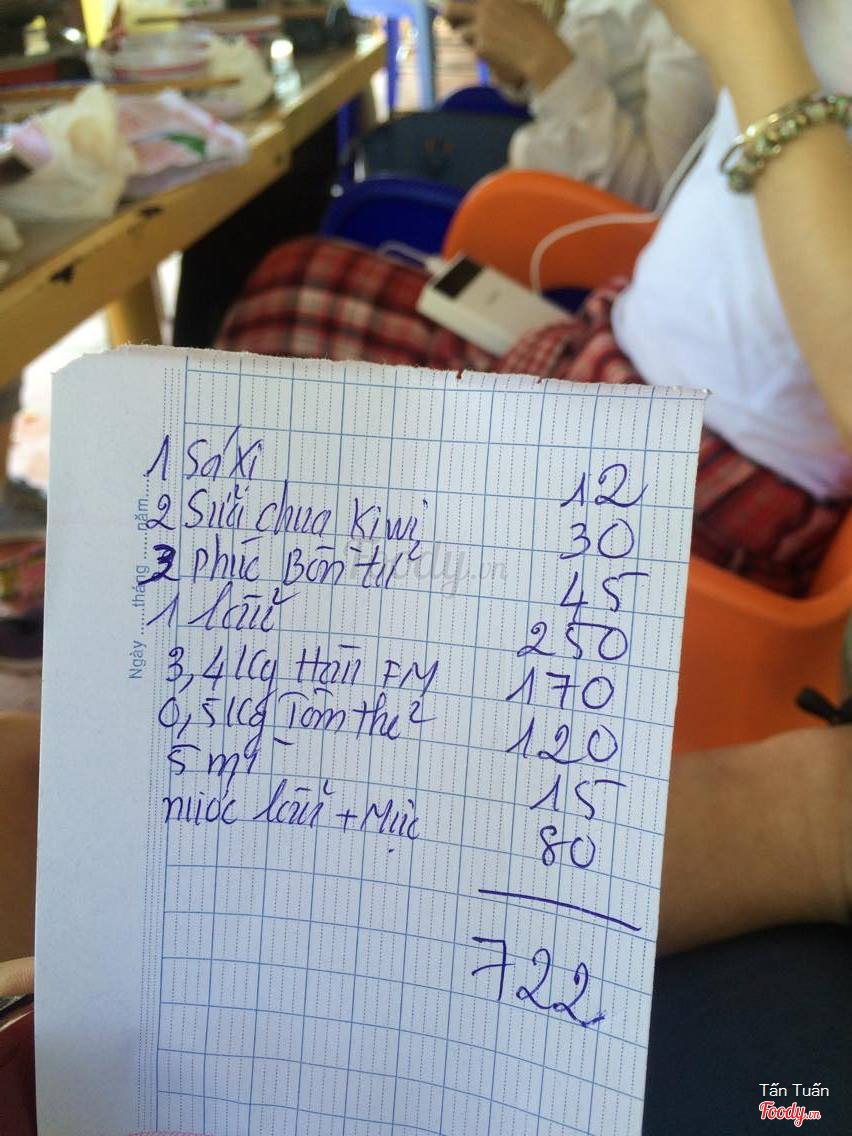 Ngày ......tháng ......năm......
1 Sá Xị 12
2 Sữa chua Kiwi 30
3 phúc Bồn tử 45
1 lẩu 250
3,4 Kg Hàu FM 170
0,5 Kg Tôm thẻ 120
5 mì 15
nước lẩu + Mực 80
722
Foody.vn
Tấn Tuấn
Foody.vn